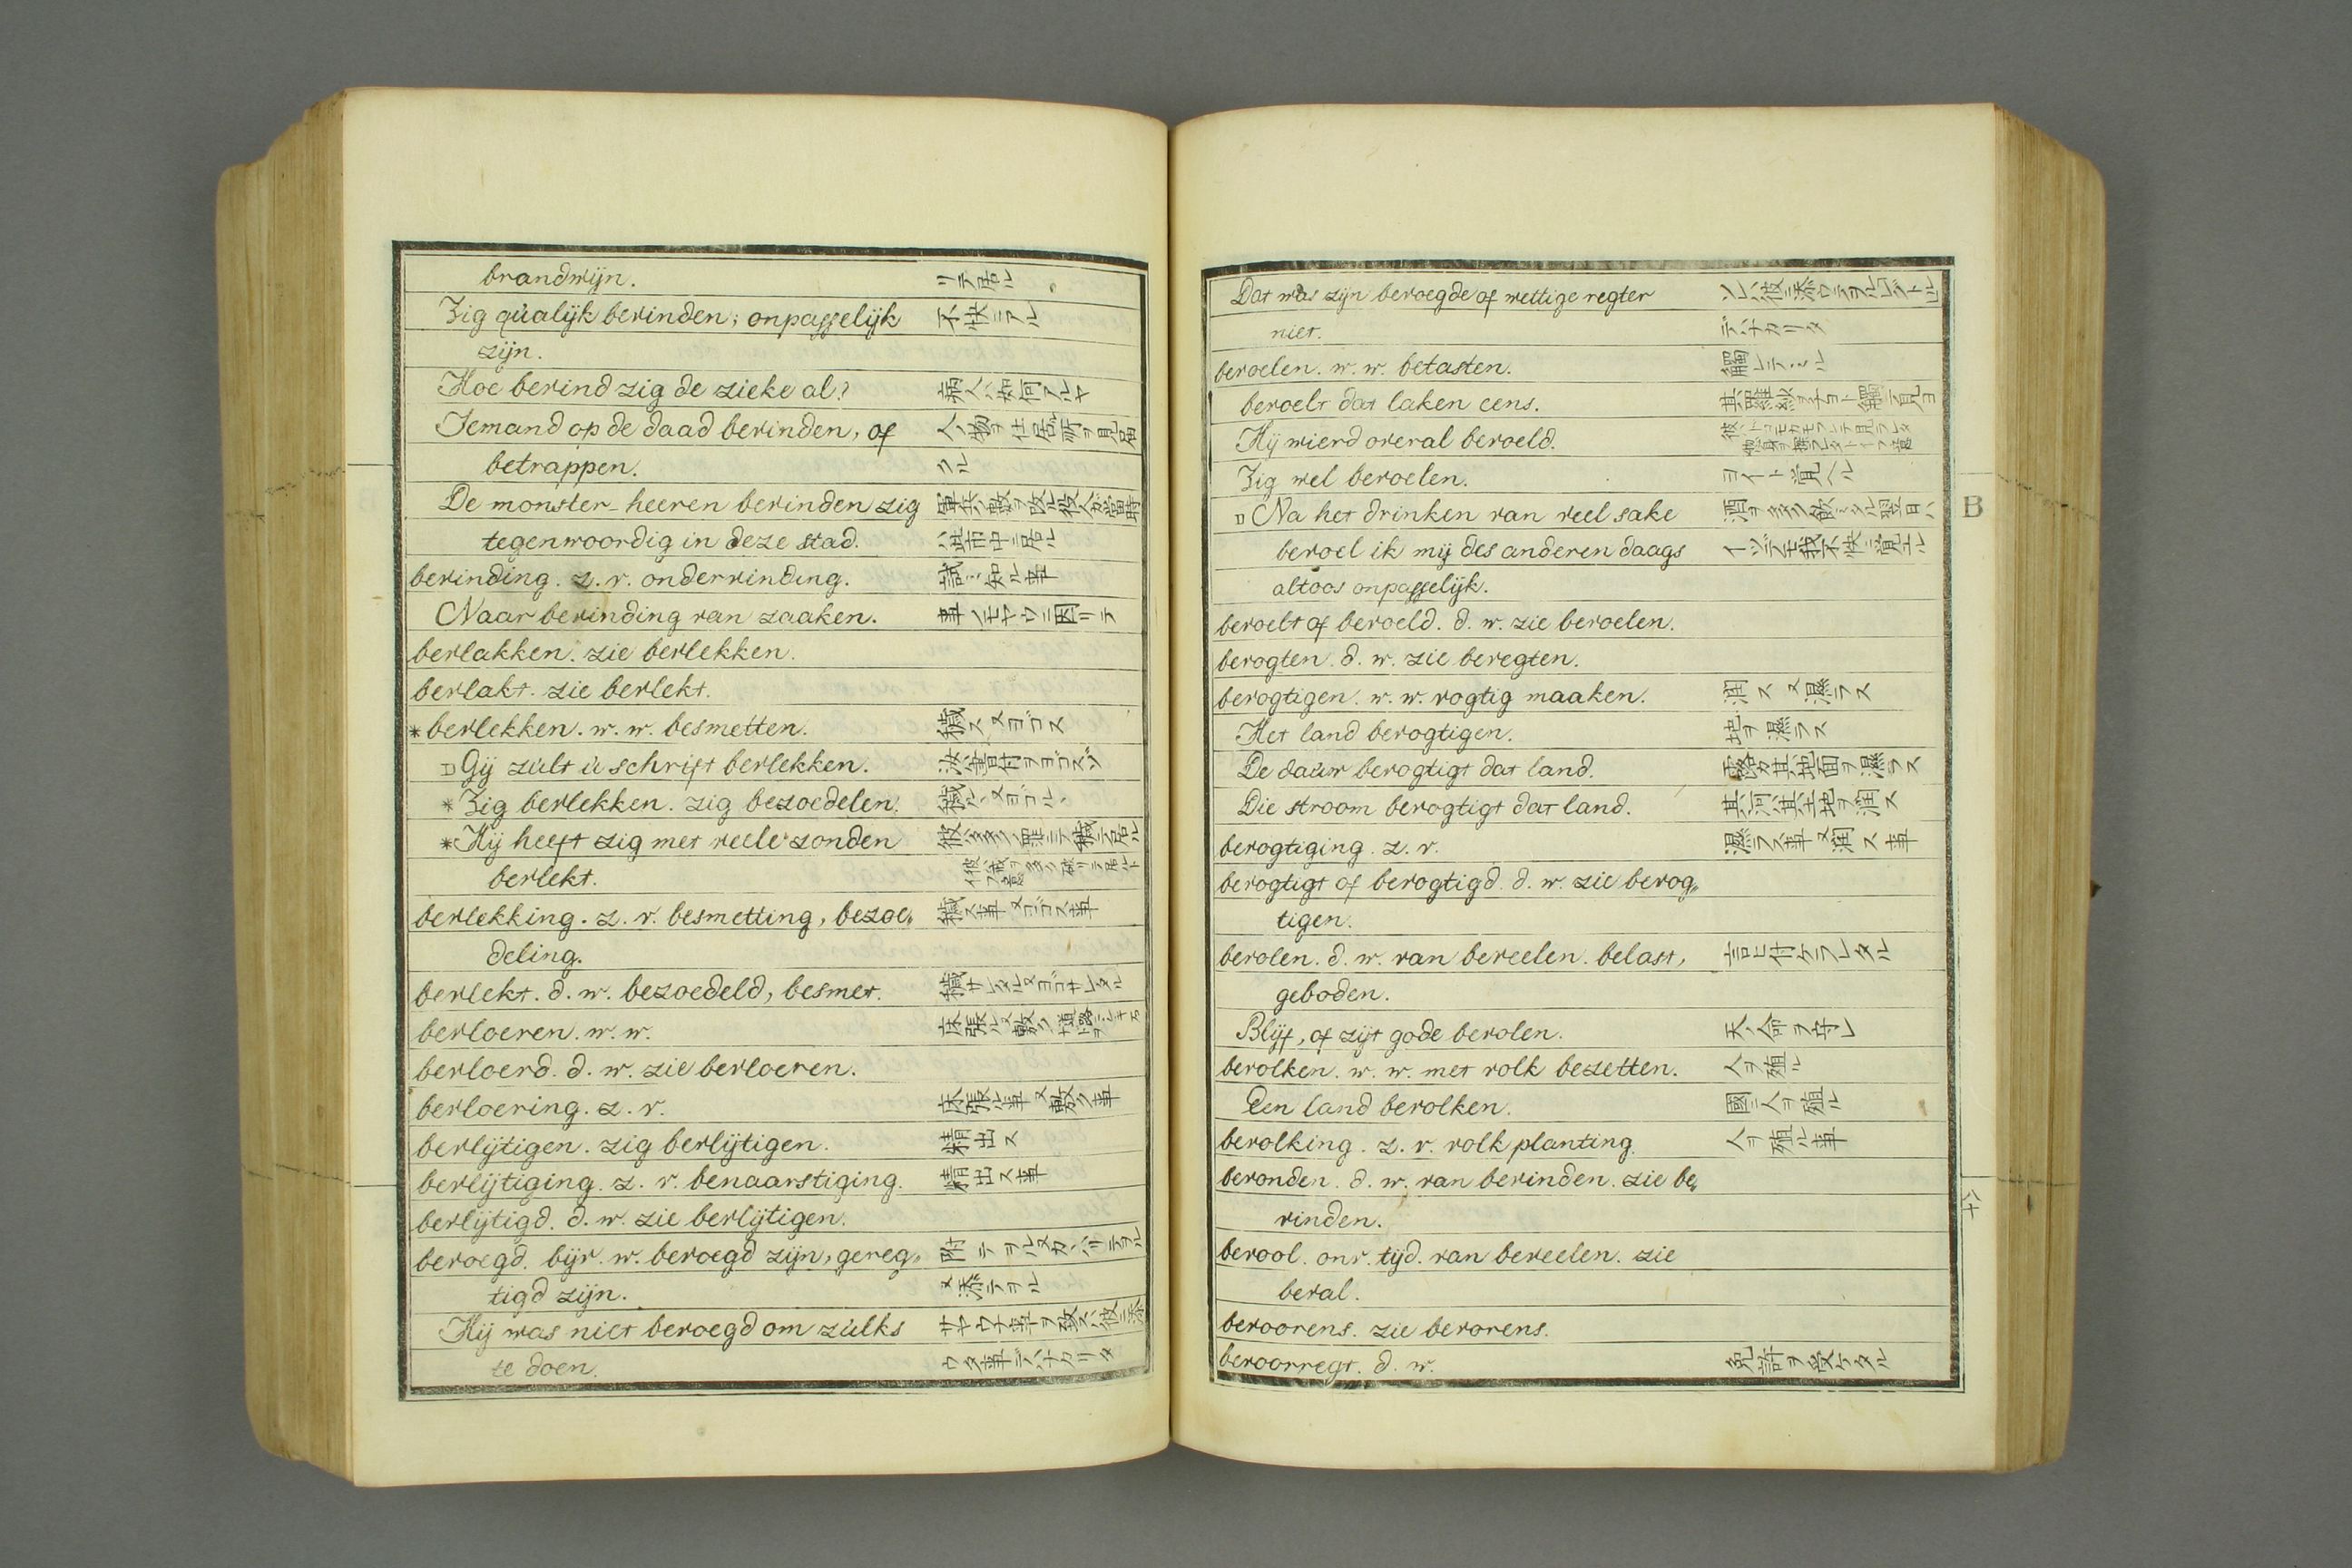 brandwijn. リテ居ル
Zig qùalijk bevinden; onpasselijk 不快テアル
zijn.
Hoe bevind zig de zieke al? 病人ハ如何アルヤ
Iemand op de daad bevinden, of
betrappen. クル
De monster-heeren bevinden zig
tegenwoordig in deze stad. 此市中ニ居ル
bevinding. z. v. ondervinding. 試ミ知ル事
Naar bevinding van zaaken. 事ノモヤウニ因リテ
bevlakken. zie bevlekken.
bevlakt. zie bevlekt.
*bevlekken. w. w. besmetten. 穢ス又ヨゴス
□Gij zùlt ù schrift bevlekken. 汝書付ヲヨゴスゾ
*Zig bevlekken. zig bezoedelen.
*Hij heeft zig met veele zonden 彼ハ多クノ罪ニテ穢テ居ル
bevlekt.
bevlekking. z. v. besmetting, bezoe„ 穢ス事又ヨゴス事
deling.
bevlekt. d. w. bezoedeld, besmet. 穢サレタル又ヨゴサレタル
bevloeren. w. w.
bevloerd. d. w. zie bevloeren.
bevloering. z. v. 床張ル事又敷ク事
bevlijtigen. zig bevlijtigen. 精出ス
bevlijtiging. z. v. benaarstiging. 精出ス事
bevlijtigd. d. w. zie bevlijtigen.
bevoegd. bijv. w. bevoegd zijn, gereg„
tigd zijn. 又添テヲル
Hij was niet bevoegd om zùlks
te doen. ウタ事デハナカリタ
Dat was zijn bevoegde of wettige regter
niet. デハナカリタ
bevoelen. w. w. betasten. 觸レテミル
bevoelt dat laken eens.
Hij wierd overal bevoeld.
Zig wel bevoelen. ヨイト覚ヘル
□ Na het drinken van veel sake 酒ヲ多ク飲ミタル翌日ハ
bevoel ik mij des anderen daags イツデモ我不快ニ覚エル
altoos onpasselijk.
bevoelt of bevoeld. d. w. zie bevoelen.
bevogten. d. w. zie bevegten.
bevogtigen. w. w. vogtig maaken. 潤ス又濕ラス
Het land bevogtigen. 地ヲ濕ラス
De daùw bevogtigt dat land. 露ガ其地面ヲ濕ラス
Die stroom bevogtigt dat land. 其河ハ其土地ヲ潤ス
bevogtiging. z. v. 濕ラス事又潤ス事
bevogtigt of bevogtigd. d. w. zie bevog„
tigen.
bevolen. d. w. van beveelen. belast, 言ヒ付ケラレタル
geboden.
Blijf, of zijt gode bevolen. 天ノ命ヲ守レ
bevolken. w. w. met volk bezetten. 人ヲ殖ル
Een land bevolken. 國ニ人ヲ殖ル
bevolking. z. v. volk planting. 人ヲ殖ル事
bevonden. d. w. van bevinden. zie be„
vinden.
bevool. onv. tijd. van beveelen. zie
beval.
bevoorens. zie bevorens.
bevoorregt. d. w. 免許ヲ受ケタル
B
八十